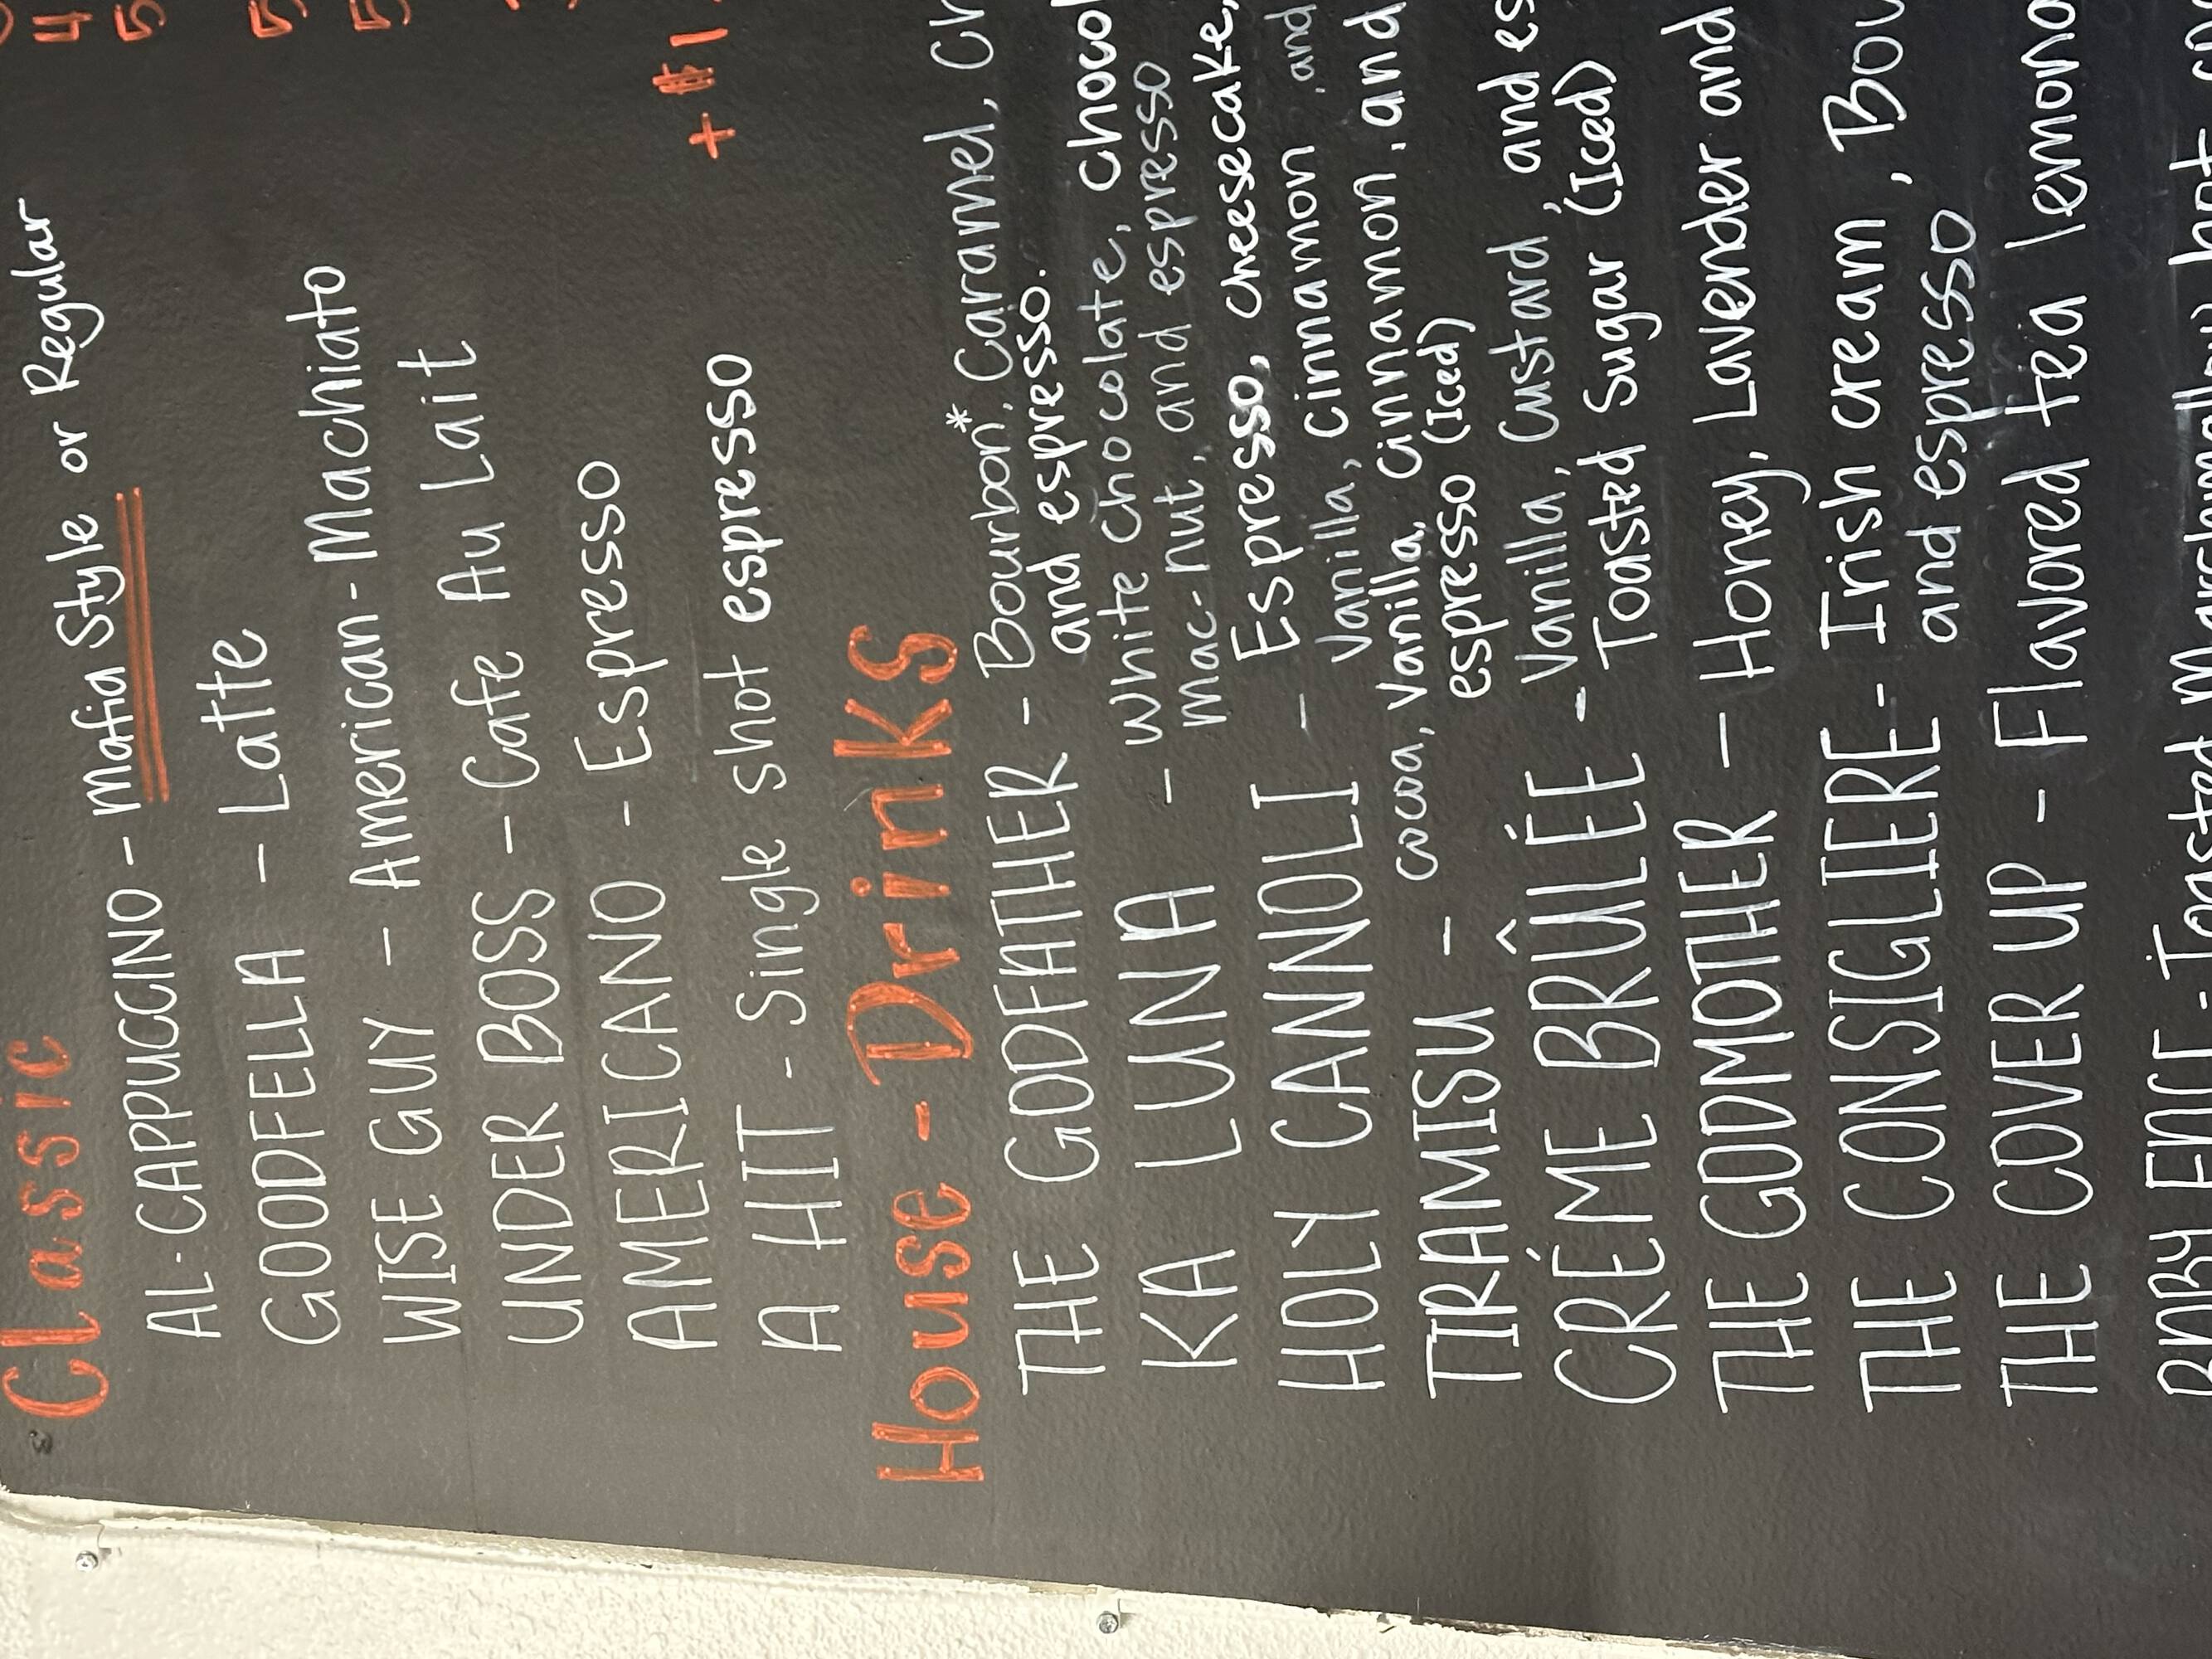 Classic
AL-CAPPUCCINO - Mafia Style or Regular
GOODFELLA - Latte
WISE GUY - American-Machiato
UNDER BOSS - Cafe Au Lait
AMERICANO - Espresso
A HIT - Single shot espresso
+ $1
House - Drinks
THE GODFATHER - Bourbon*, Caramel,
and espresso.
KA LUNA - White chocolate, chocol
mac-nut, and espresso
HOLY CANNOLI - Espresso, cheesecake,
Vanilla, cinnamon, and
TIRAMISU - cocoa, vanilla, cinnamon, and
espresso (Iced)
CRÉME BRÛLÉE - Vanilla, Custard, and es
Toasted Sugar (Iced)
THE GODMOTHER - Honey, Lavender and
THE CONSIGLIERE - Irish cream, Bou
and espresso
THE COVER UP - Flavored tea lemona